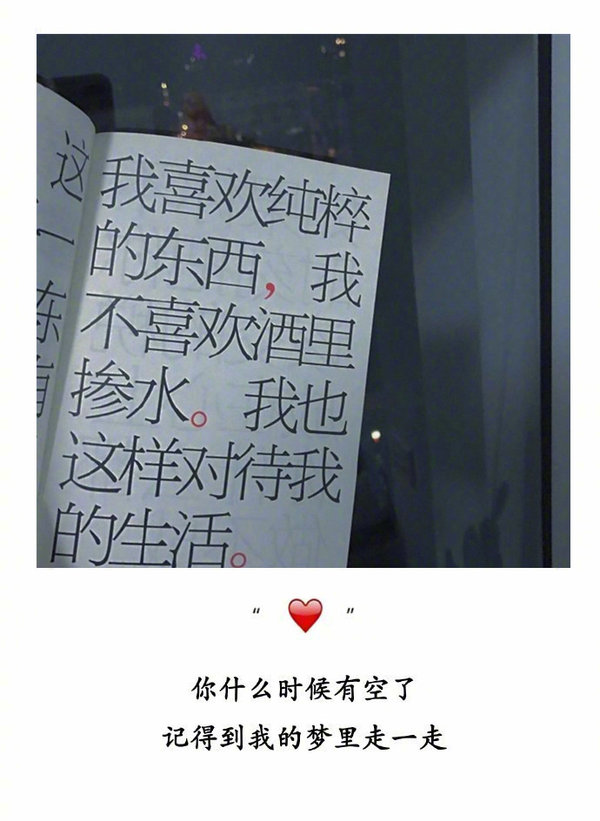 我喜欢纯粹
的东西，我
不喜欢酒里
掺水。我也
这样对待我
的生活。
这
一
“ ❤ ”
你什么时候有空了
记得到我的梦里走一走